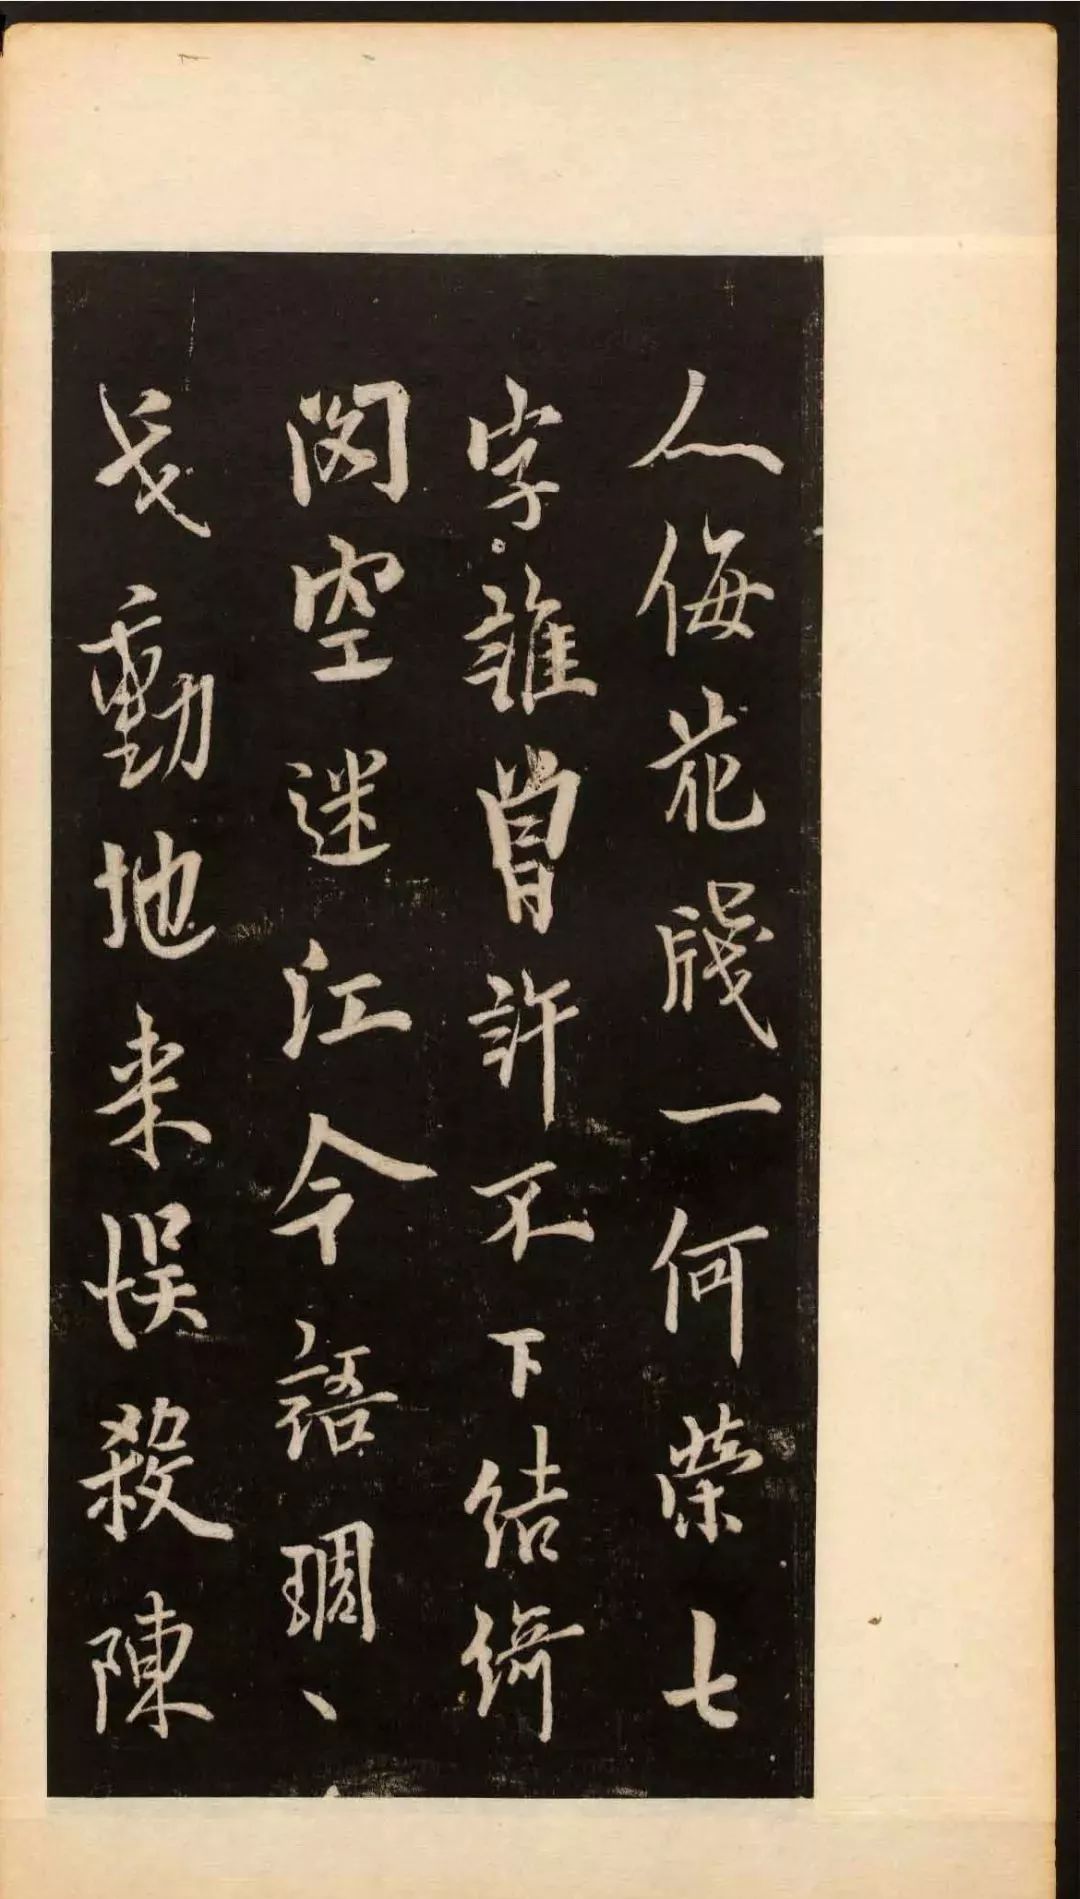 人侮花牋一何榮七
字誰曾許不下結綺
閣空迷江令語琱、
戈動地来悞殺陳